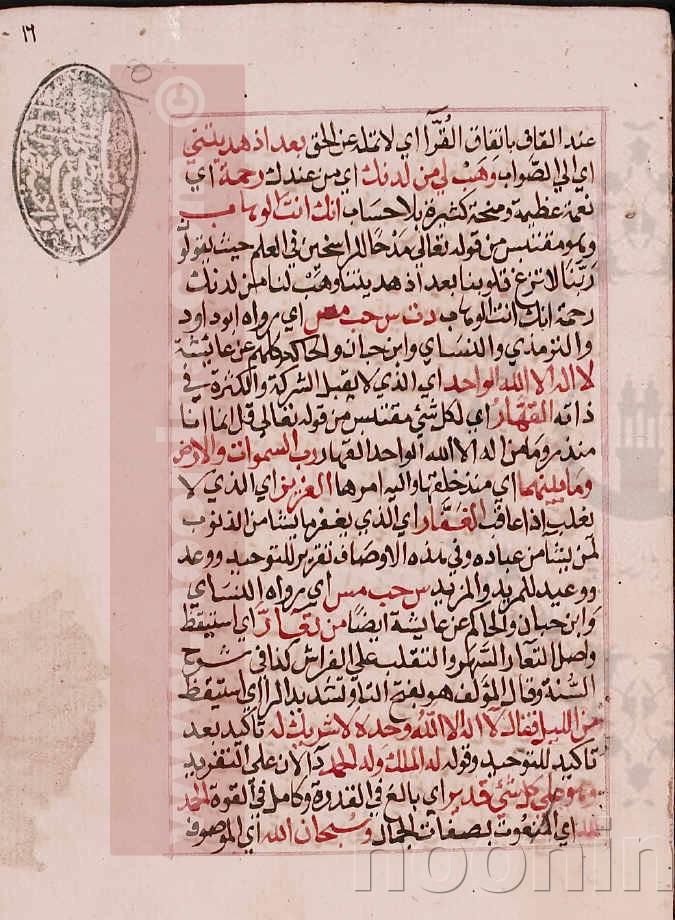 ١٦
عند القاف باتفاق القُرّآ اي لا تمله عن الحق بعد اذ هديتني
اي الي الصَّواب وَهَبْ لي من لدنك اي من عندك رحمة اي
نعمة عظيمة ومنحة كثيرة بلا حساب انك انت الوهاب
وهو مقتبس من قوله تعالي مَدْحًا للراسخين في العلم حيث يقولو
رَبَّنَا لا تزغ قلوبنا بعد اذ هديتنا وهَبْ لنا من لدنك
رحمة انك انت الوهاب دت س حب مس اي رواه ابو داود
والترمذي والنسَاي وابن حبان والحاكم كلهم عن عايشة
لا اله الا الله الواحد اي الذي لا يقبل الشركة والكثرة في
ذاته القهَّارُ اي لكل شئ مقتبس من قوله تعالي قل انما انا
منذر وما من اله الا الله الواحد القهار رب السموات والارض
وما بينهما اي منذ خلقها واليه امرها العزيز اي الذي لا
يغلب اذا عاقب الغَفَّار اي الذي يغفر ما يشا من الذنوب
لمن يشا من عباده وفي هذه الاوصاف تقرير للتوحيد ووعد
ووعيد للمريد والمزيد س حب مس اي رواه النسَاي
وَابن حبان والحاكم عن عايشة ايضًا من تعَارَّ اي استيقظ
واصل التعار السَّهر والتقلب علي الفراش كذا في شرح
السُّنة وقال المؤلف هو بفتح التا وتشديد الرا اي استيقظ
من الليل فقال لا اله الا الله وحده لا شريك له تاكيد بعد
تاكيد للتوحيد وقوله له الملك وله الحمد دآلان علي التفريد
وهو علي كل شئ قدير اي بالغ في القدرة وكامل في القوة الحمد
لله اي المنعُوت بصفات الجمال وسُبحان الله اي الموصوف
noonin